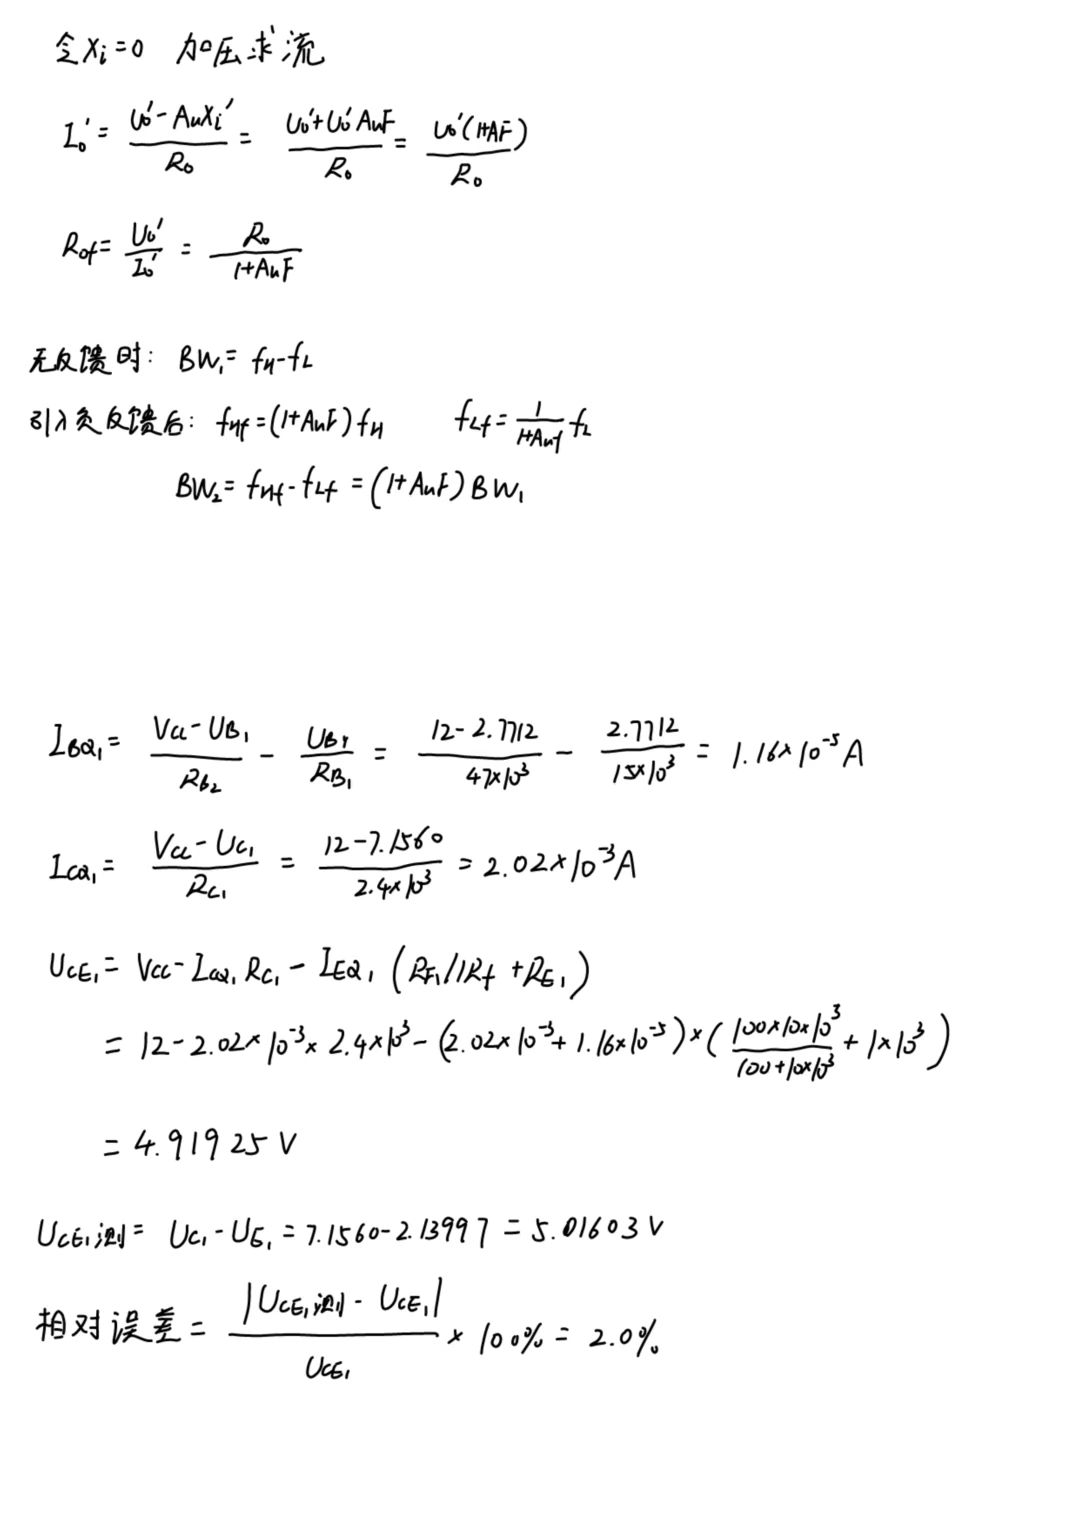 令Xi=0 加压求流
Io' = (Uo'-AuXi')/Ro = (Uo'+Uo'AuF)/Ro = Uo'(1+AF)/Ro
Rof = Uo'/Io' = Ro/(1+AuF)
无反馈时: BW₁= fH-fL
引入负反馈后: fHf=(1+AuF)fH fLf= 1/(1+Auf) fL
BW₂= fHf-fLf =(1+AuF)BW₁
IBQ₁= (Vcc-UB₁)/RB₂ - UB₁/RB₁ = (12-2.7712)/(47×10³) - 2.7712/(15×10³) = 1.16×10⁻⁵A
ICQ₁= (Vcc-UC₁)/RC₁ = (12-7.1560)/(2.4×10³) = 2.02×10⁻³A
UCE₁= Vcc-ICQ₁RC₁-IEQ₁(RF₁//Rf+RE₁)
= 12-2.02×10⁻³×2.4×10³-(2.02×10⁻³+1.16×10⁻⁵)×((100×10×10³)/(100+10×10³)+1×10³)
= 4.91925V
UCE₁测= UC₁-UE₁=7.1560-2.13997=5.01603V
相对误差= |UCE₁测-UCE₁|/UCE₁ × 100% = 2.0%